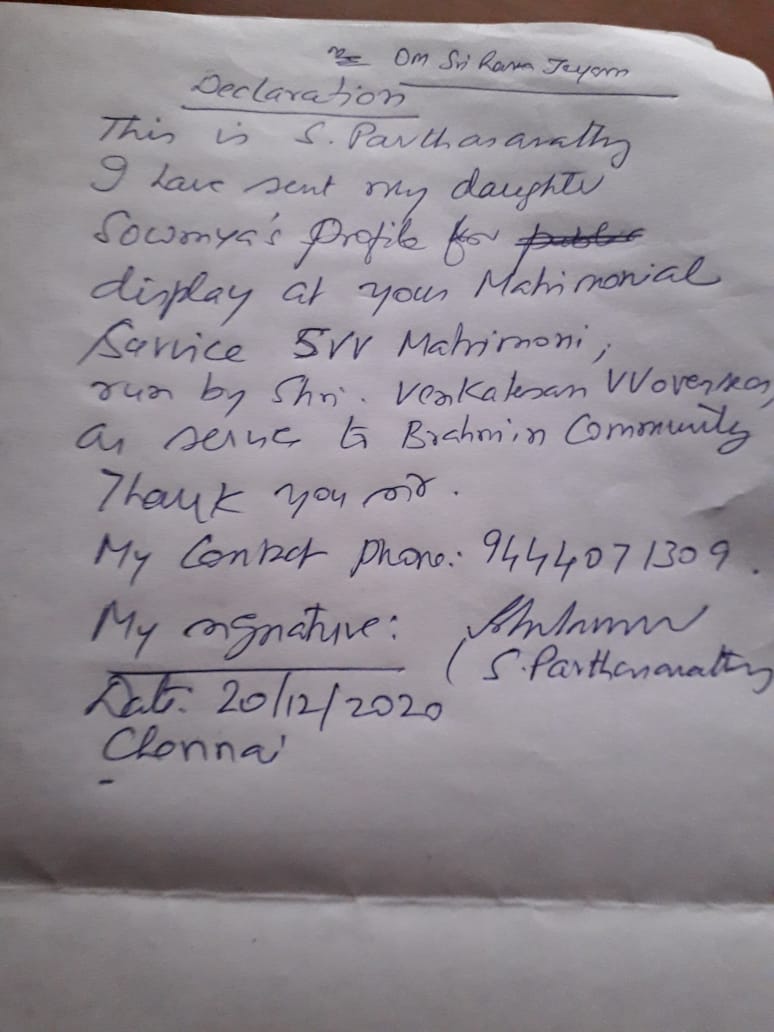 Om Sri Rama Jeyam
Declaration
This is S. Parthasarathy
I have sent my daughter
Sowmya's profile for
display at your Matrimonial
Service SVV Matrimoni,
run by Shri. Venkatesan
as serve to Brahmin Community
Thank you sir.
My Contact phone: 9444071309.
My signature:
(S. Parthasarathy
Date: 20/12/2020
Chennai